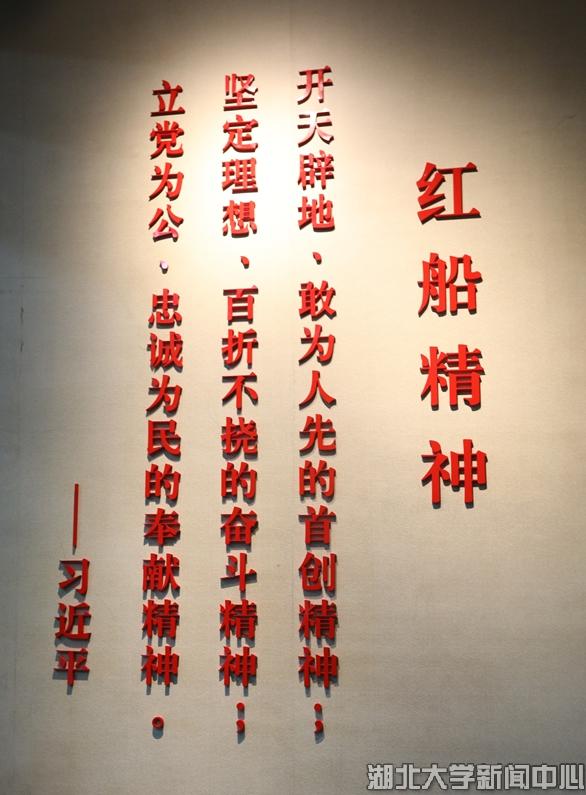 红船精神
开天辟地、敢为人先的首创精神；
坚定理想、百折不挠的奋斗精神；
立党为公、忠诚为民的奉献精神。
——习近平
湖北大学新闻中心